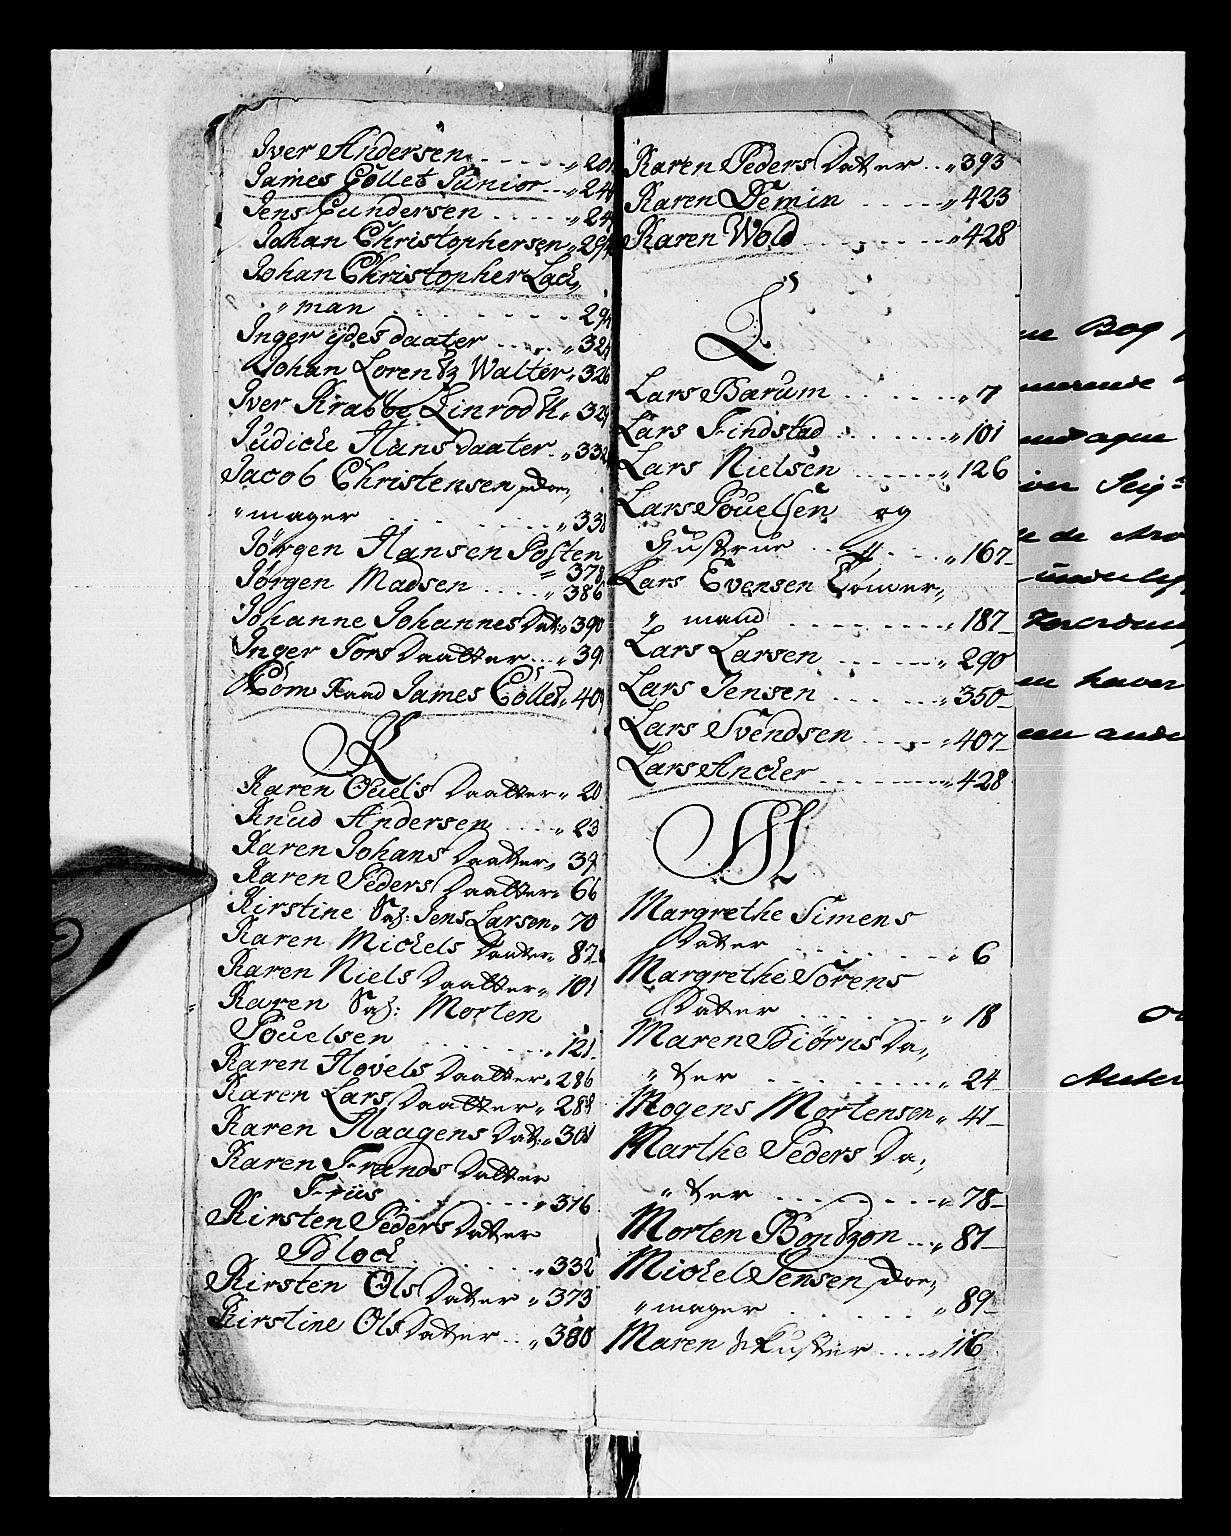 Iver Andersen . . . . . „ 20
James Collet Junior . . „ 24
Jens Gundersen . . . . . „ 24
Johan Christophersen „ 29
Johan Christopher Lack„
„ man . . . . . . . . 29
Inger ydes daater . . . . „ 32
Johan Lorentz Walter „ 326
Iver Krabbe Linrod „ 32
Judiche Hans daater . . „ 332
Jacob Christensen
„ mager . . . . . . . „ 338
Jørgen Hansen Posten
„ 378
Jørgen Madsen . . . . „ 386
Johanne Johannes Dat: „ 390
Inger Tors Daatter . . . „ 39
Kom Raad James Collet „ 40
K
Karen Oluels Daatter „ 20
Knud Andersen . . . . „ 23
Karen Johans Daatter „ 39
Karen Peders Daatter „ 66
Kirstine Sal: Jens Larsen „ 70
Karen Michels Daater „ 82
Karen Niels Daatter „ 101
Karen Sal: Morten
Pouelsen . . . . . . . „ 121
Karen Hovels Daatter „ 286
Karen Lars Daatter „ 288
Karen Haagens Dat: „ 301
Karen Frands Datter
Friis . . . . . . . „ 316
Kirsten Peders Datter
Block . . . . . . „ 332
Kirsten Ols Datter „ 373
Kirstine Ols Datter . . „ 380
Karen Peders Datter . . „ 393
Karen Demin . . . . . „ 423
Karen Wold . . . . . . . „ 428
L
Lars Barum . . . . . . „ 7
Lars Findstad . . . . . „ 101
Lars Nielsen . . . . . . „ 126
Lars Pouelsen og
Hustrue . . . . . . „ 167
Lars Evensen Tømer„
„ mand . . . . . . . . „ 187
Lars Larsen . . . . . „ 290
Lars Jensen . . . . . . „ 350
Lars Svendsen . . . . . „ 407
Lars Ancher . . . . . . . „ 428
M
Margrethe Simens
Datter . . . . . . . . „ 6
Margrethe Sørens
Datter . . . . . . . „ 18
Maren Biørns Da„
„ tter . . . . . . . . . „ 24
Mogens Mortensen „ 41
Marthe Peders Da„
„ tter . . . . . . . . „ 78
Morten Bontzon . . . „ 81
Michel Jensen
„ mager . . . . . . „ 89
Maren . . . . „ 116
Bog
haver